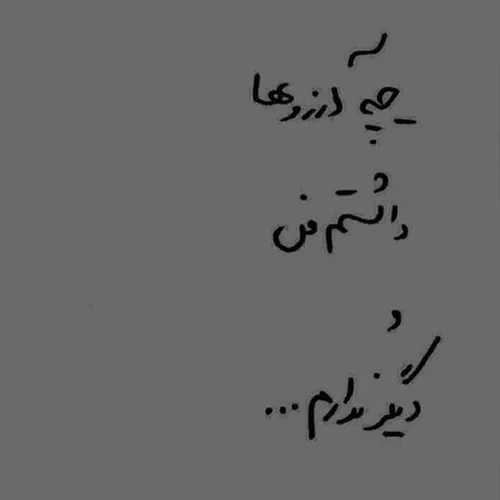 چه آرزوها
داشتم من
و
دیگر ندارم...